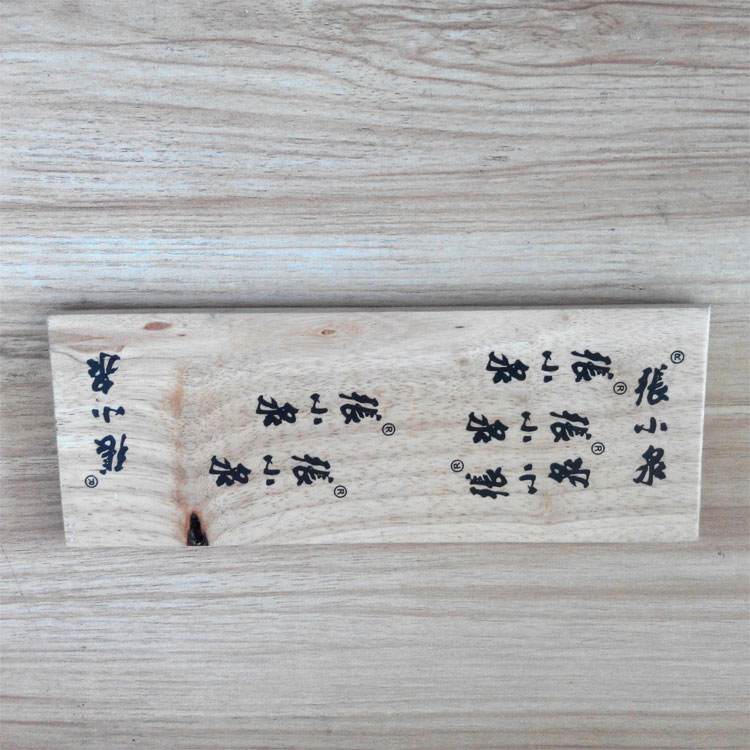 張小泉®
張小泉®
張小泉®
張小泉®
張小泉®
張小泉®
張小泉®